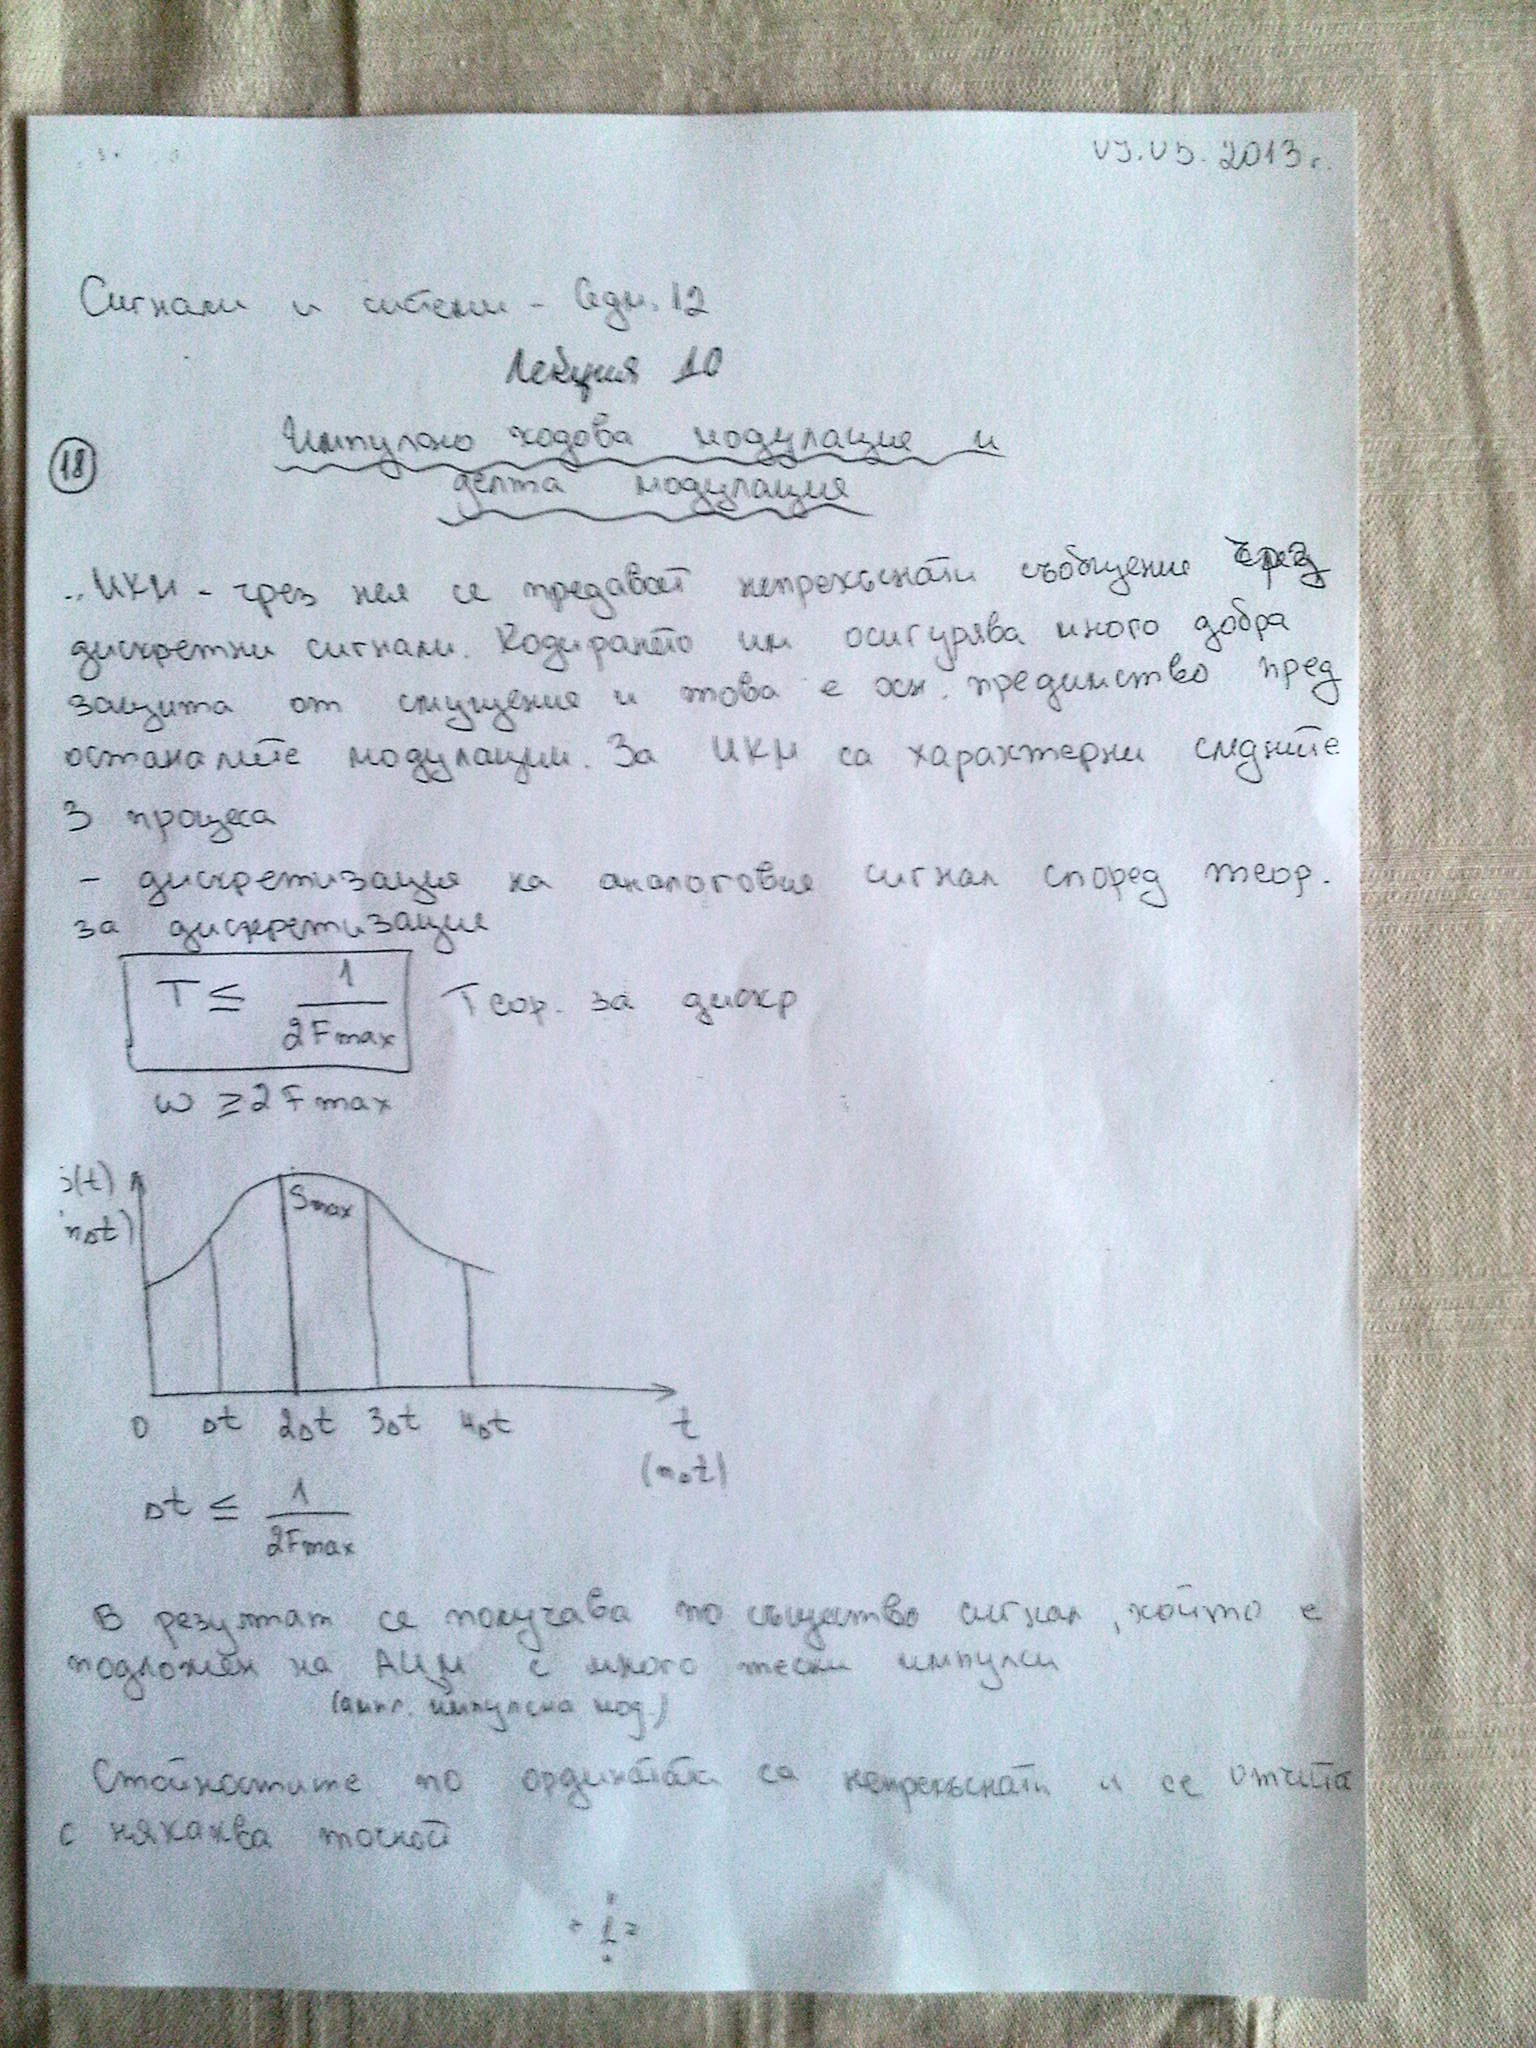 2013 г.
Сигнали и системи - Седм. 12
Лекция 10
18
Импулсно кодова модулация и
делта модулация
ИКМ - чрез нея се предават непрекъснати съобщение чрез
дискретни сигнали. Кодирането им осигурява много добра
защита от смущения и това е осн. предимство пред
останалите модулации. За ИКМ са характерни следните
3 процеса
- дискретизация на аналоговия сигнал според теор.
за дискретизация
T ≤ 1/2Fmax Теор. за дискр
ω ≥ 2Fmax
s(t)
(n∆t)
Smax
0 ∆t 2∆t 3∆t 4∆t t
(n∆t)
∆t ≤ 1/2Fmax
В резултат се получава по същество сигнал, който е
подложен на АИМ с много тесни импулси
(ампл. импулсна мод.)
Стойностите по ордината са непрекъснати и се отчита
с някаква точной
- 1 -